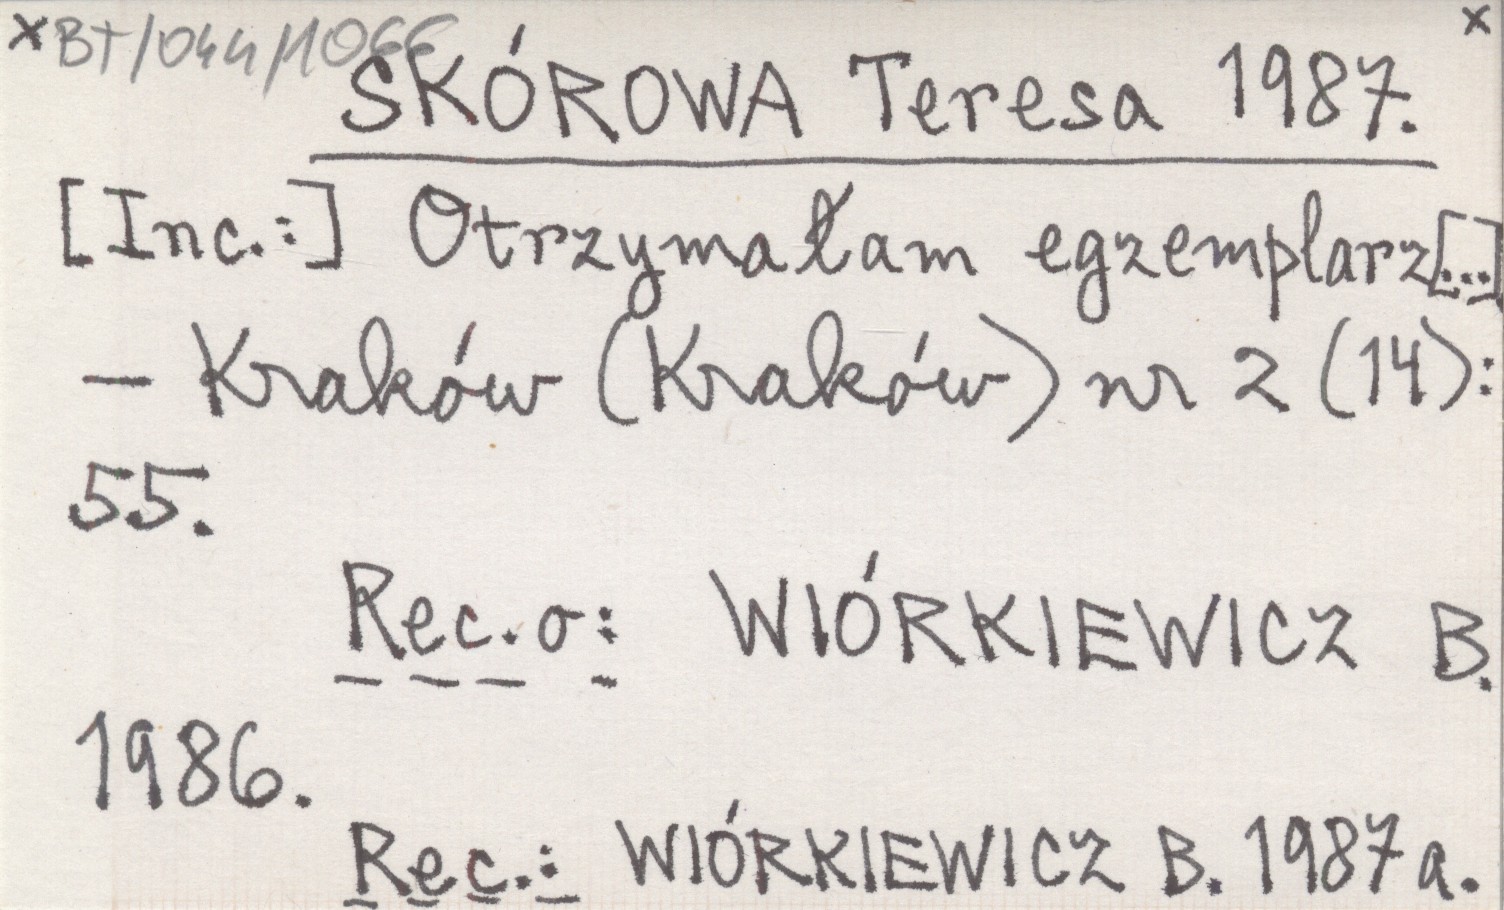 x BT/044/1066 x
SKÓROWA Teresa 1987.
[Inc.:] Otrzymałam egzemplarz[...]
– Kraków (Kraków) nr 2 (14):
55.
Rec. o: WIÓRKIEWICZ B.
1986.
Rec.: WIÓRKIEWICZ B. 1987a.